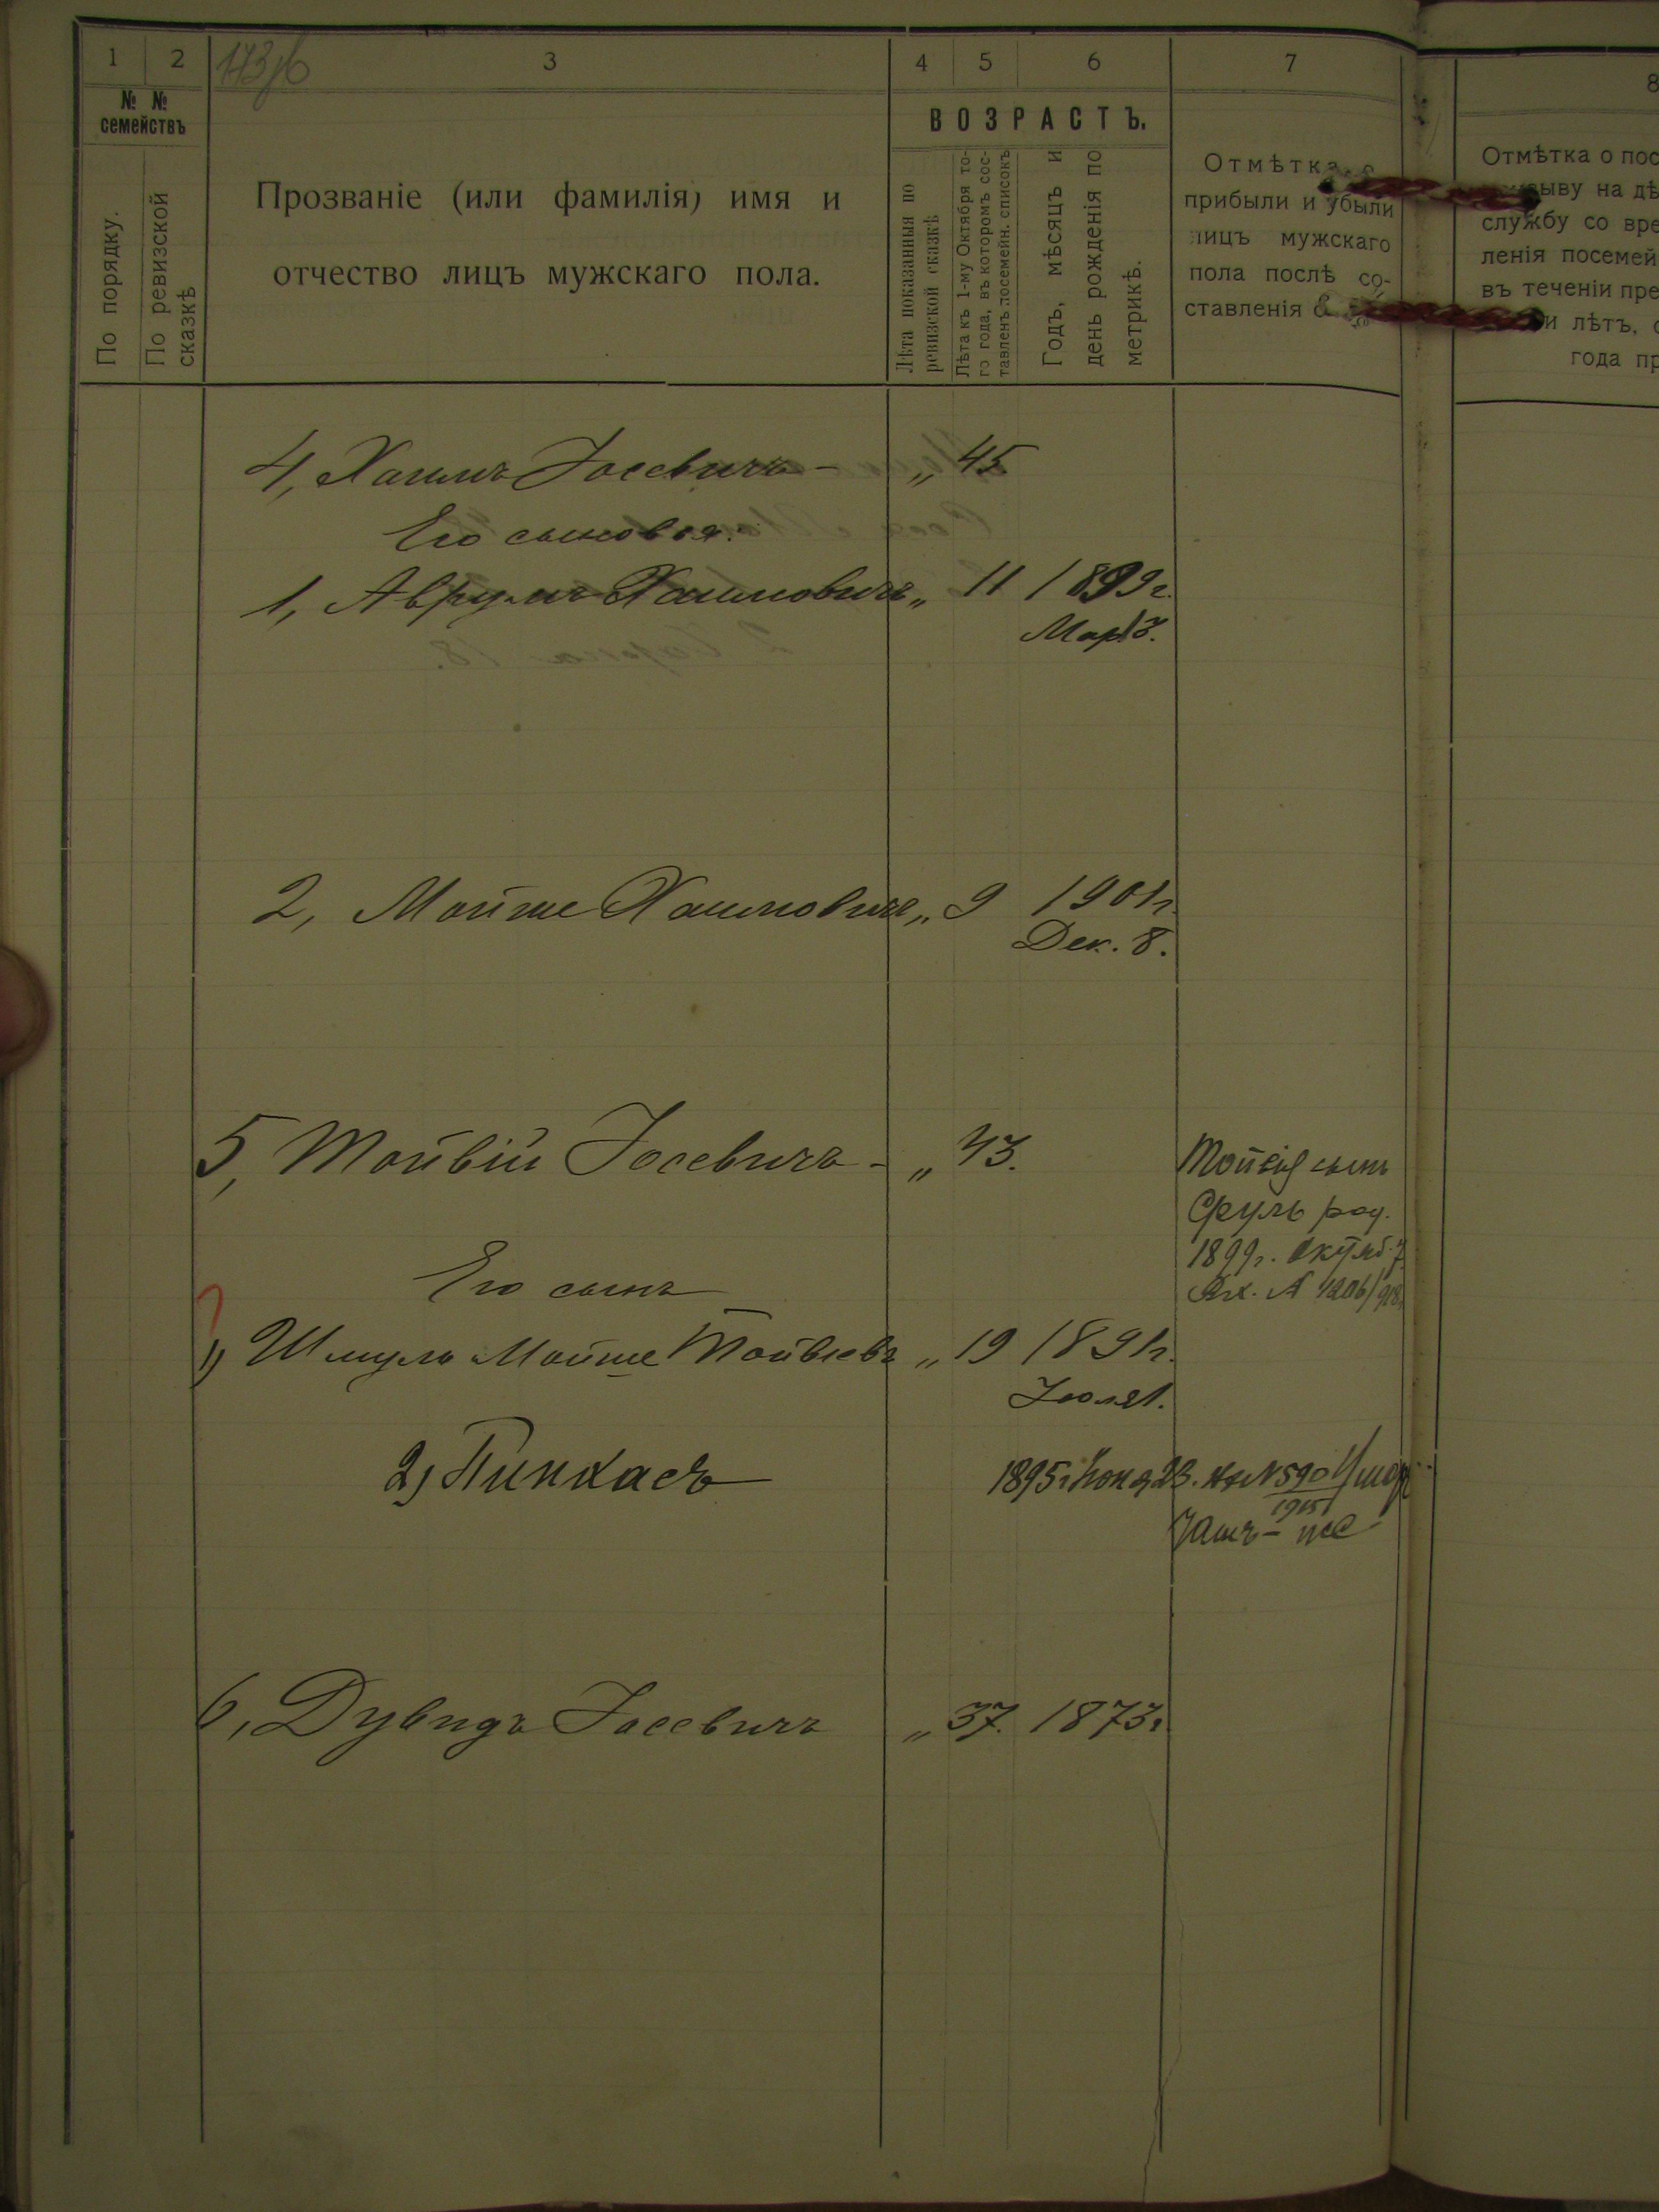 1 2 3 4 5 6 7 8
№ № семействъ
По порядку.
По ревизской сказкѣ
Прозваніе (или фамилія) имя и
отчество лицъ мужскаго пола.
ВОЗРАСТЪ.
Лѣта показанныя по
ревизской сказкѣ
Лѣта къ 1-му Октября то-
го года, въ которомъ сос-
тавленъ посемейн. списокъ
Годъ, мѣсяцъ и
день рожденія по
метрикѣ.
Отмѣтка о
прибыли и убыли
лицъ мужскаго
пола послѣ со-
ставленія
Отмѣтка о пос
ыву на дѣ
службу со вре
ленія посемей
въ теченіи пре
и лѣтъ, с
года пр
4, Хаимъ Іосевичъ - „ 45
Его сыновья:
1, Аврумъ Хаимовичъ „ 11 1899г.
Мар. 3.
2, Мойше Хаимовичъ „ 9 1901г.
Дек. 8.
5, Тойвій Іосевичъ - „ 43.
Тойвія сынъ
Сруль род.
1899г.
Вх. № 1206/918
Его сынъ
1) Шмуль Мойше Тойвіевъ „ 19 1891г.
Іюля 1.
2) Пинхасъ 1895г. 23. № 590
1915
6, Дувидъ Іосевичъ „ 37. 1873г.